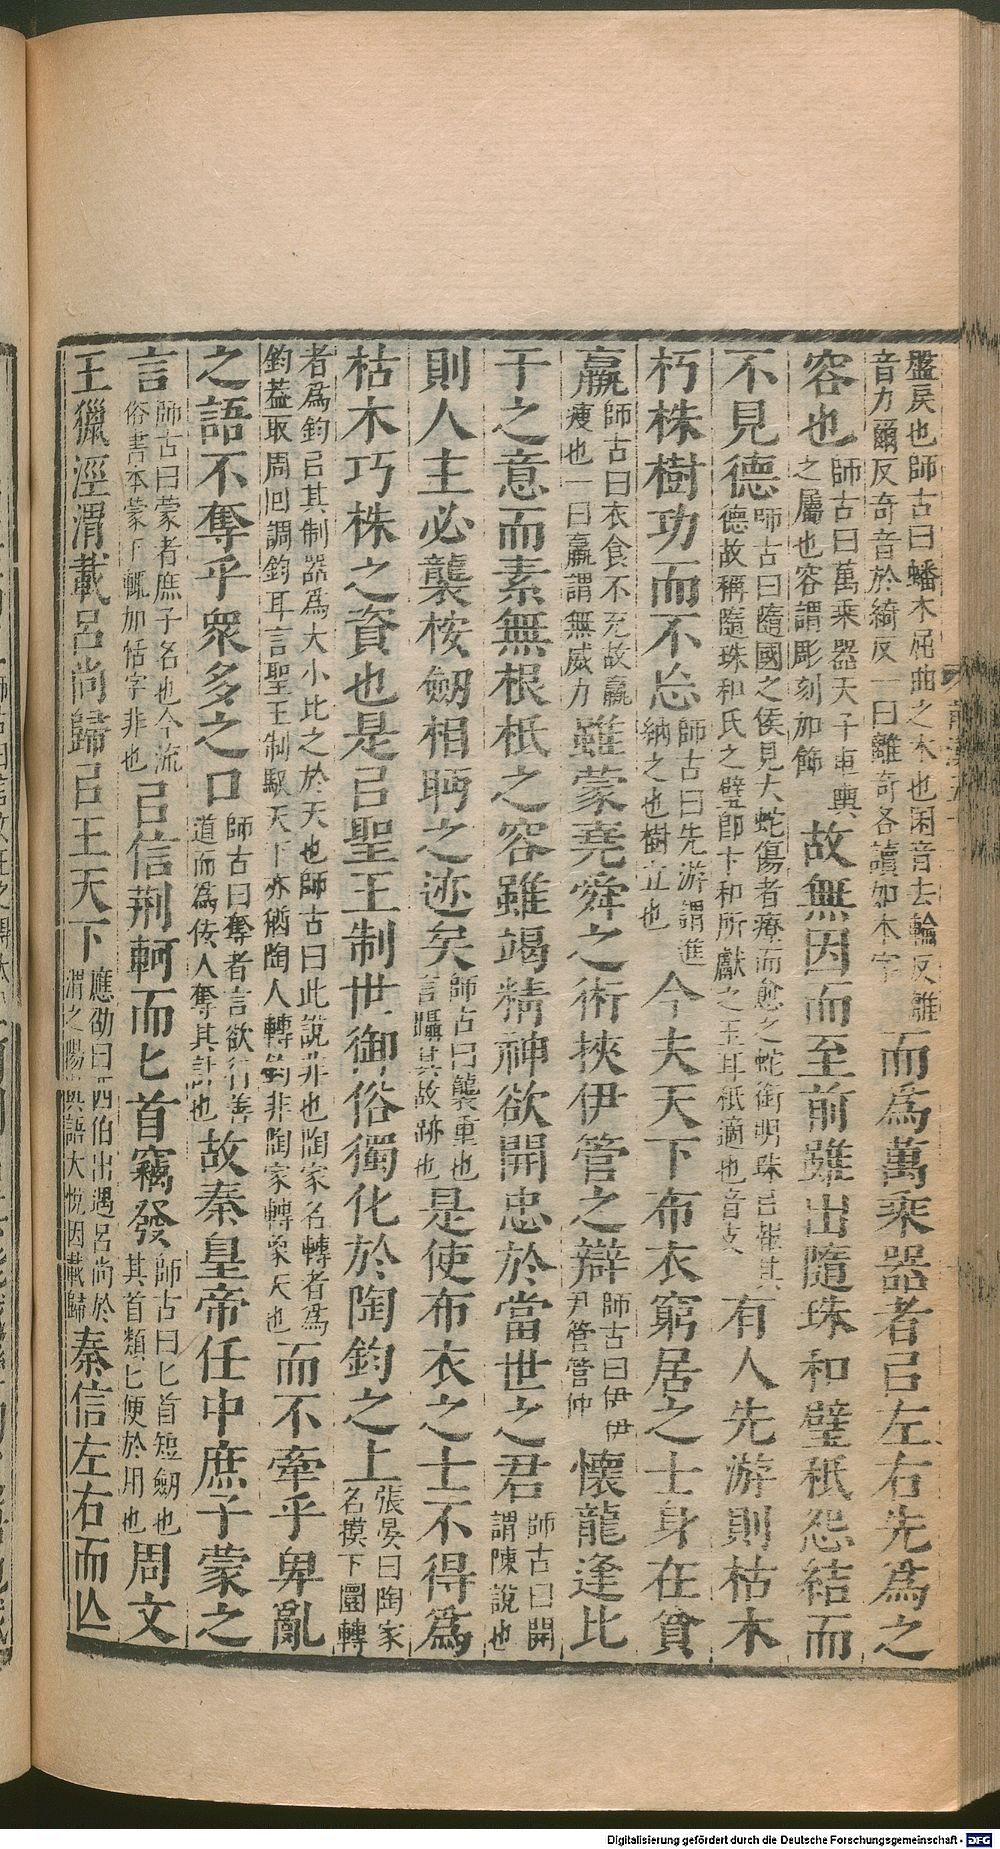 盤戾也師古曰蟠木屈曲之木也囷音去輪反離音力爾反奇音於綺反一曰離奇各讀如本字而爲萬乘器者㠯左右先爲之
容也師古曰萬乘器天子車輿之屬也容謂彫刻加飾故無因而至前雖出隨珠和璧秖怨結而
不見德師古曰隨國之侯見大蛇傷者療而愈之蛇銜明珠㠯報其德故稱隨珠和氏之璧卽卞和所獻之玉耳秖適也音支有人先游則枯木
朽株樹功而不忘師古曰先游謂進納之也樹立也今夫天下布衣窮居之士身在貧
羸師古曰衣食不充故羸瘦也一曰羸謂無威力雖蒙堯舜之術挾伊管之辯師古曰伊伊尹管管仲懷龍逢比
干之意而素無根柢之容雖竭精神欲開忠於當世之君師古曰開謂陳說也
則人主必襲桉劒相眄之迹矣師古曰襲重也言躡其故跡也是使布衣之士不得爲
枯木朽株之資也是㠯聖王制世御俗獨化於陶鈞之上張晏曰陶家名摸下圜轉
者爲鈞㠯其制器爲大小比之於天也師古曰此說非也陶家名轉者爲鈞葢取周回調鈞耳言聖王制馭天下亦猶陶人轉鈞非陶家轉象天也而不牽乎卑亂
之語不奪乎衆多之口師古曰奪者言欲行善道而爲佞人奪其計也故秦皇帝任中庶子蒙之
言師古曰蒙者庶子名也今流俗書本蒙下輒加恬字非也㠯信荆軻而匕首竊發師古曰匕首短劒也其首類匕便於用也周文
王獵涇渭載呂尚歸㠯王天下應劭曰西伯出遇呂尚於渭之陽與語大悅因載歸秦信左右而亾
Digitalisierung gefördert durch die Deutsche Forschungsgemeinschaft - DFG